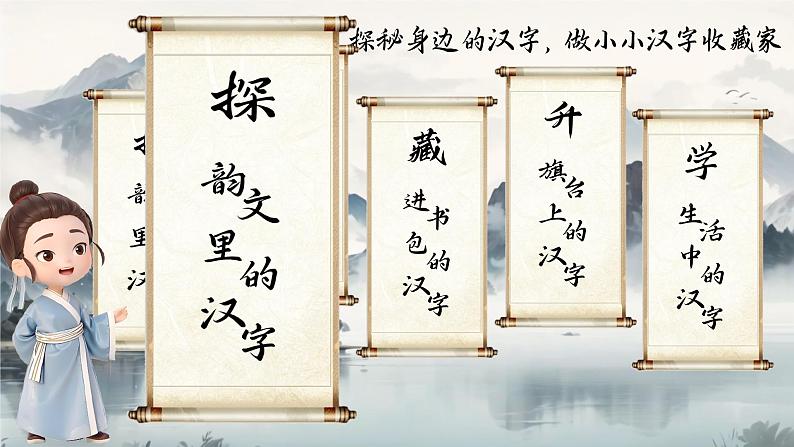 探秘身边的汉字，做小小汉字收藏家
探
韵文里的汉字
藏
进书包的汉字
升
旗台上的汉字
学
生活中的汉字
韵
里
汉